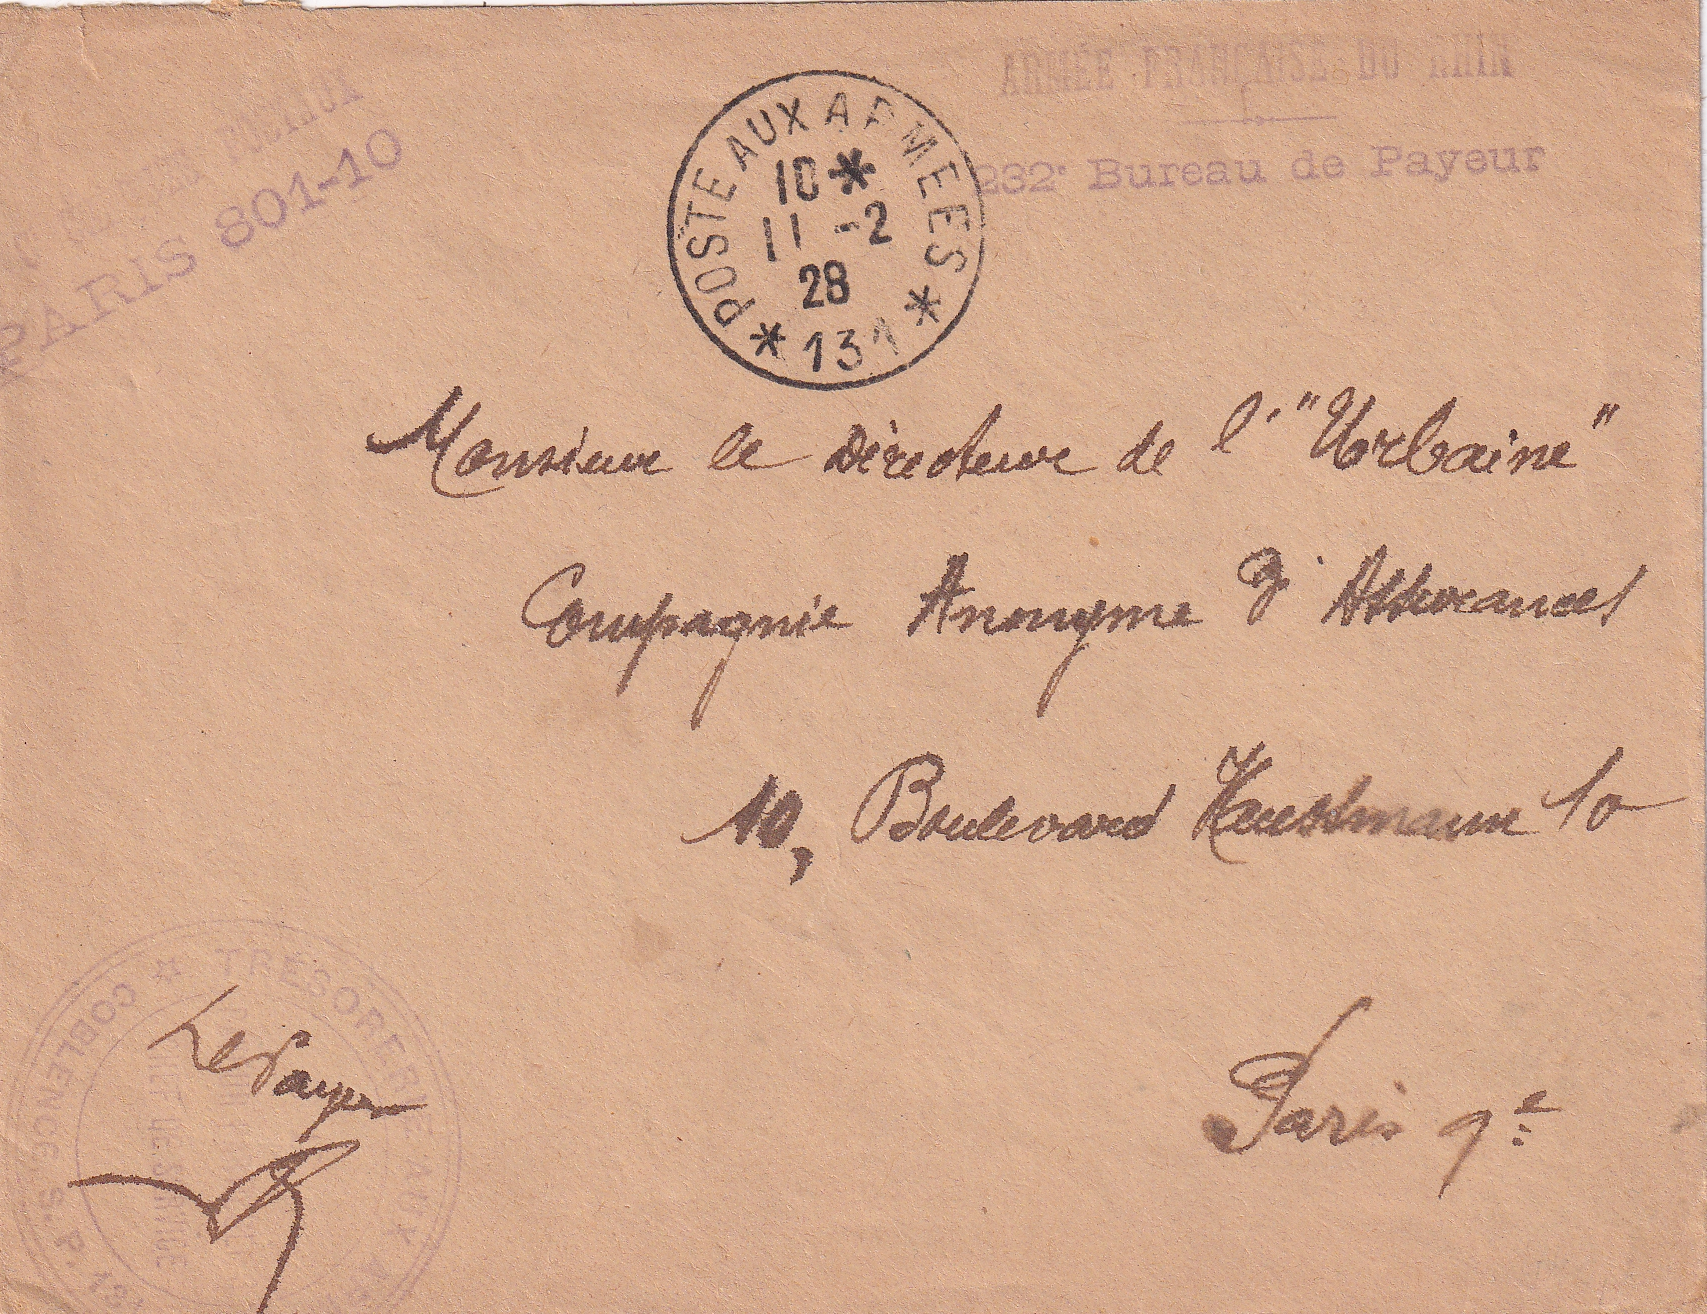 ARMÉE FRANÇAISE DU RHIN
232e Bureau de Payeur
POSTAUX
PARIS 801-10
POSTE AUX ARMEES
10*
11 -2
28
* 131 *
Monsieur le Directeur de l' "Urbaine"
Compagnie Anonyme d'Assurances
10, Boulevard Haussmann 10
Paris 9e
TRÉSORERIE AUX ARM
COBLENCE S.P. 131
DE SERVICE
Le Payeur